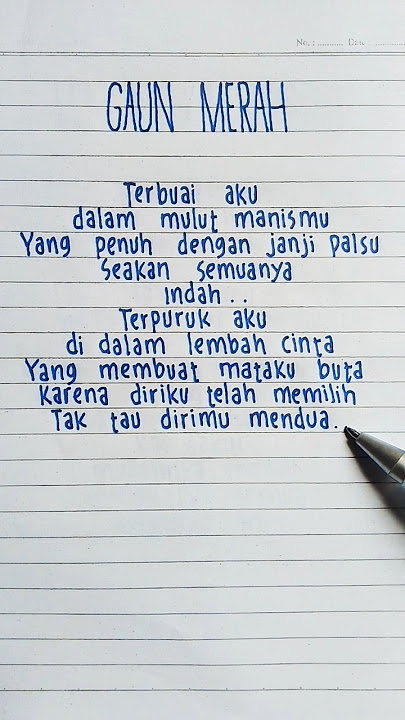 No. : ........... Date : ...........
GAUN MERAH
Terbuai aku
dalam mulut manismu
Yang penuh dengan janji palsu
Seakan semuanya
indah . .
Terpuruk aku
di dalam lembah cinta
Yang membuat mataku buta
Karena diriku telah memilih
Tak tau dirimu mendua .